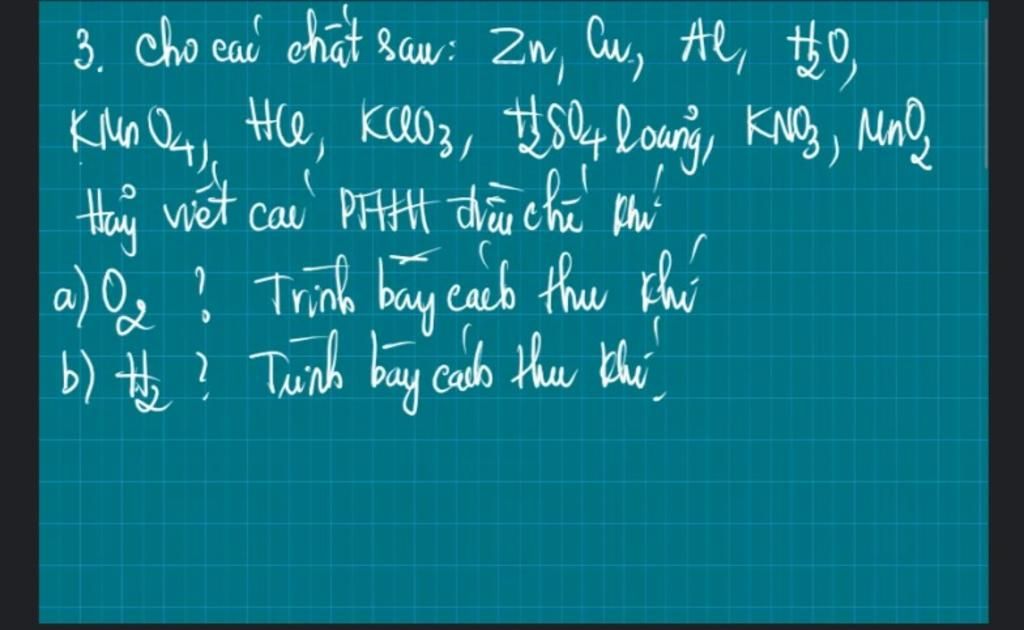 3. Cho các chất sau: Zn, Cu, Al, H₂O,
KMnO₄, HCl, KClO₃, H₂SO₄ loãng, KNO₃, MnO₂
Hãy viết các PTHH điều chế khí
a) O₂ ? Trình bày cách thu khí
b) H₂ ? Trình bày cách thu khí.